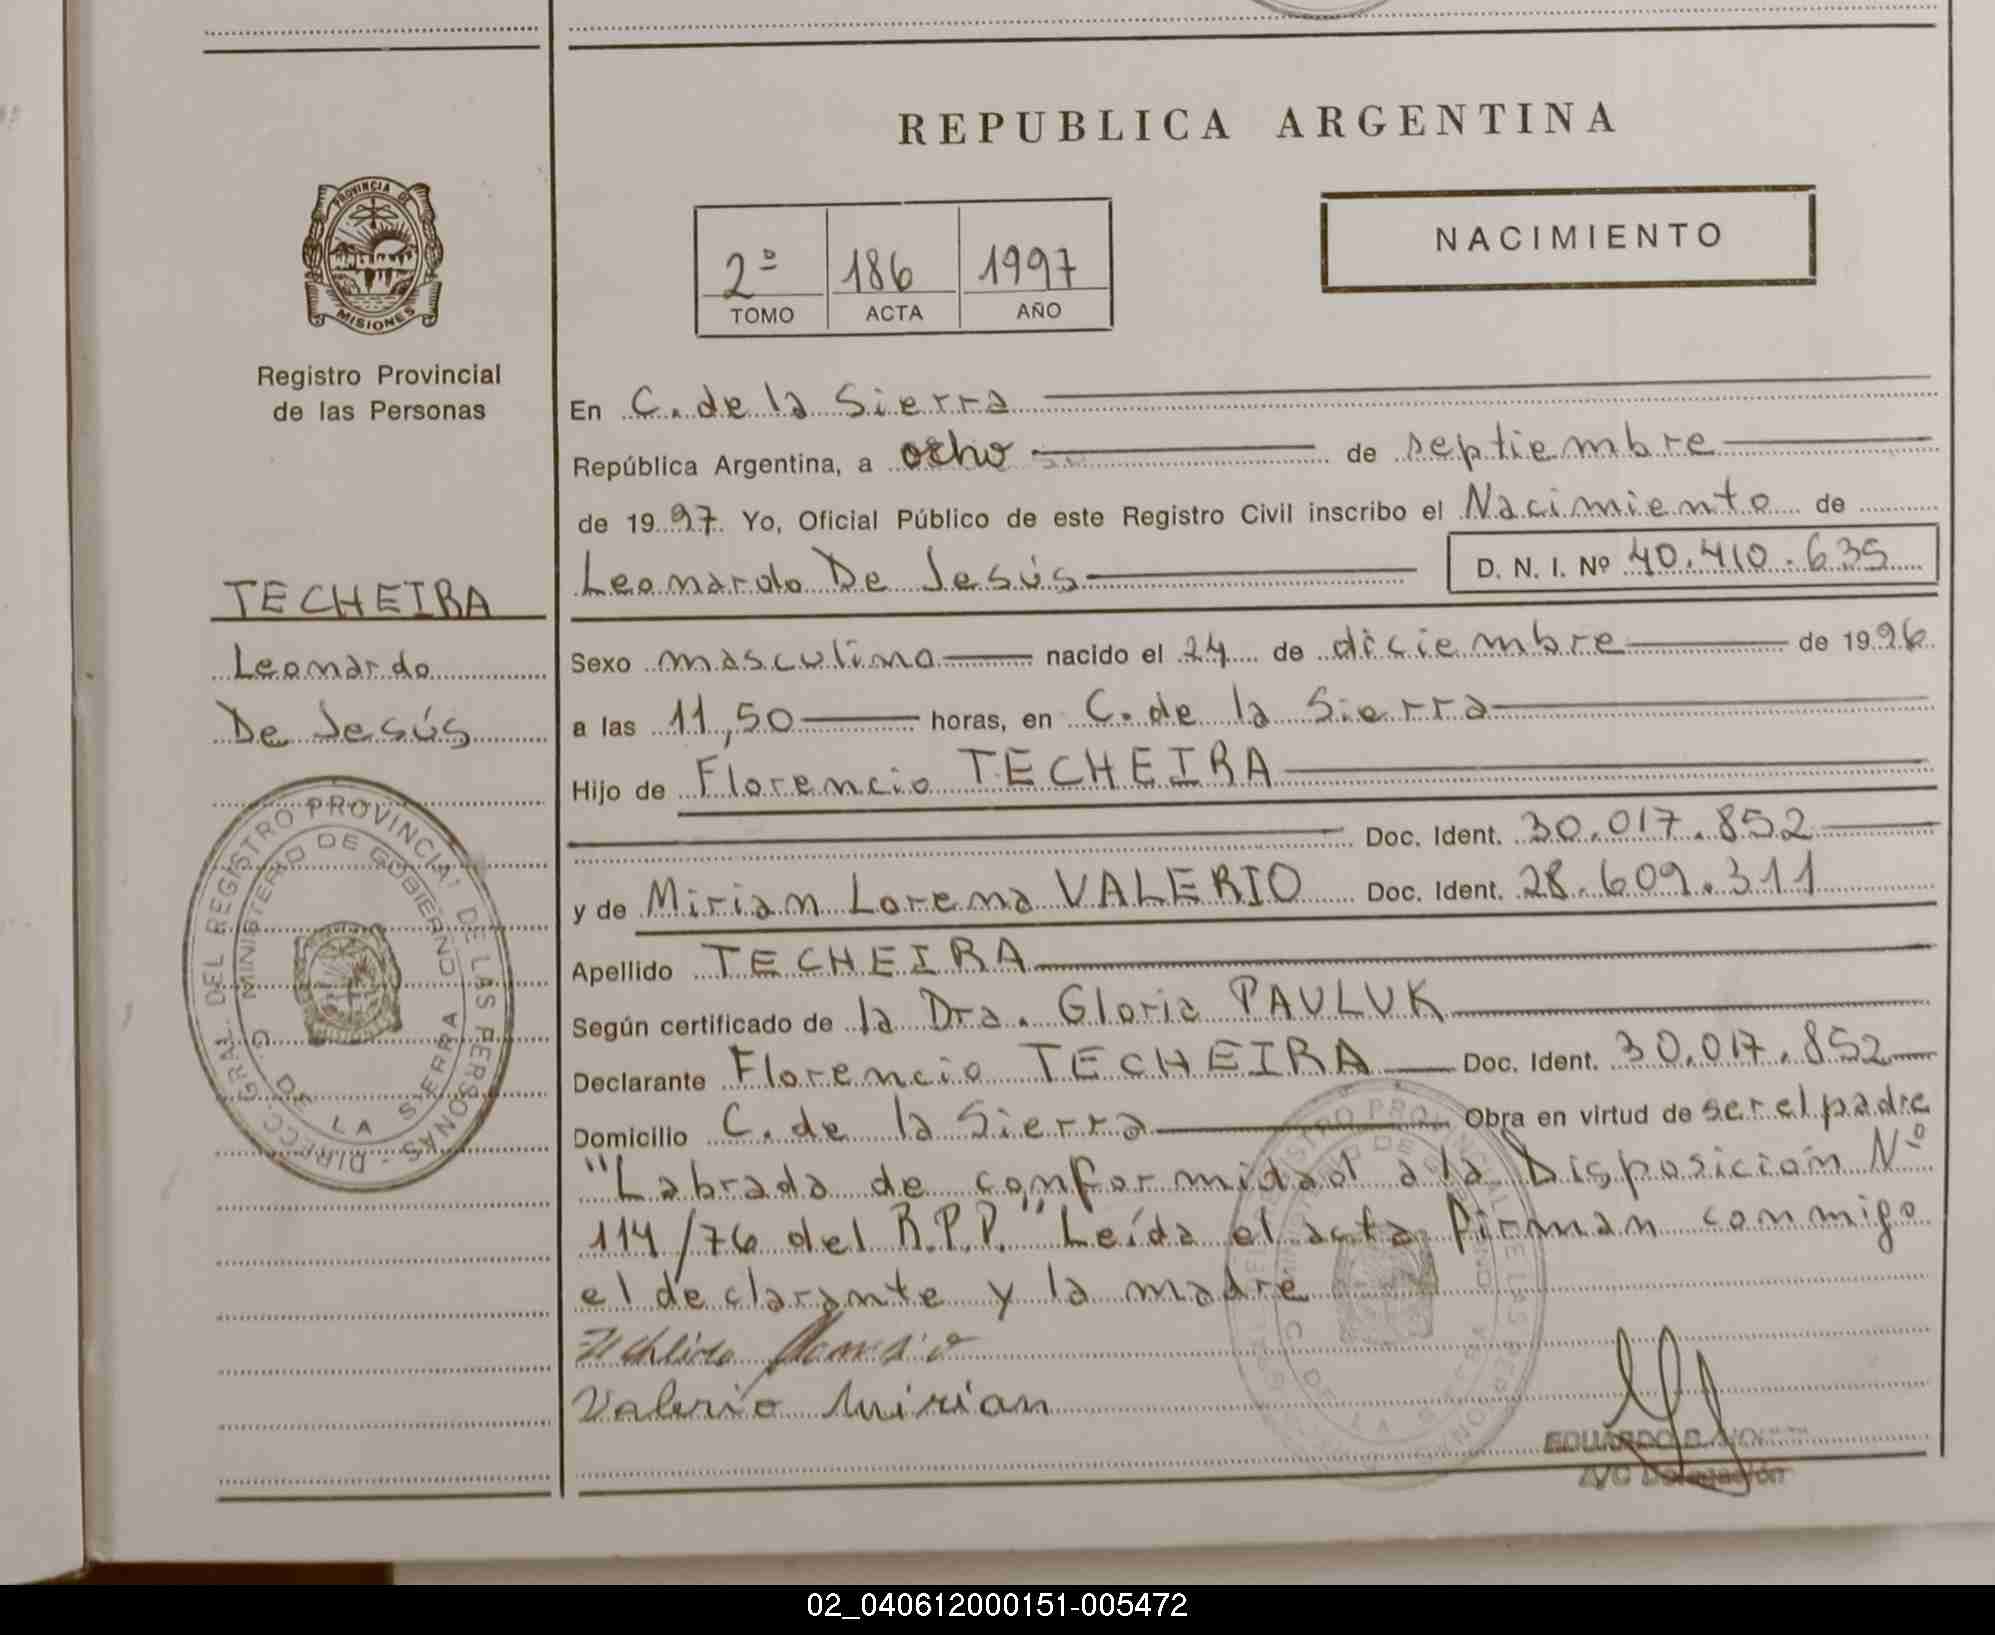 REPUBLICA ARGENTINA
PROVINCIA DE
MISIONES
Registro Provincial
de las Personas
NACIMIENTO
2º 186 1997
TOMO ACTA AÑO
TECHEIRA
Leonardo
De Jesús
En C. de la Sierra
República Argentina, a ocho de septiembre
de 1997 Yo, Oficial Público de este Registro Civil inscribo el Nacimiento de
Leonardo De Jesús D. N. I. Nº 40.410.635
Sexo masculino nacido el 24 de diciembre de 1996
a las 11,50 horas, en C. de la Sierra
Hijo de Florencio TECHEIRA
Doc. Ident. 30.017.852
y de Mirian Lorena VALERIO Doc. Ident. 28.609.311
Apellido TECHEIRA
Según certificado de la Dra. Gloria PAULUK
Declarante Florencio TECHEIRA Doc. Ident. 30.017.852
Domicilio C. de la Sierra Obra en virtud de ser el padre
"Labrada de conformidad a la Disposición Nº
114/76 del R.P.P." Leída el acta firman conmigo
el declarante y la madre
Valerio Mirian
DIRECC. GRAL. DEL REGISTRO PROVINCIAL DE LAS PERSONAS
MINISTERIO DE GOBIERNO
C. DE LA SIERRA
EDUARDO D.
A/C Delegación
02_040612000151-005472